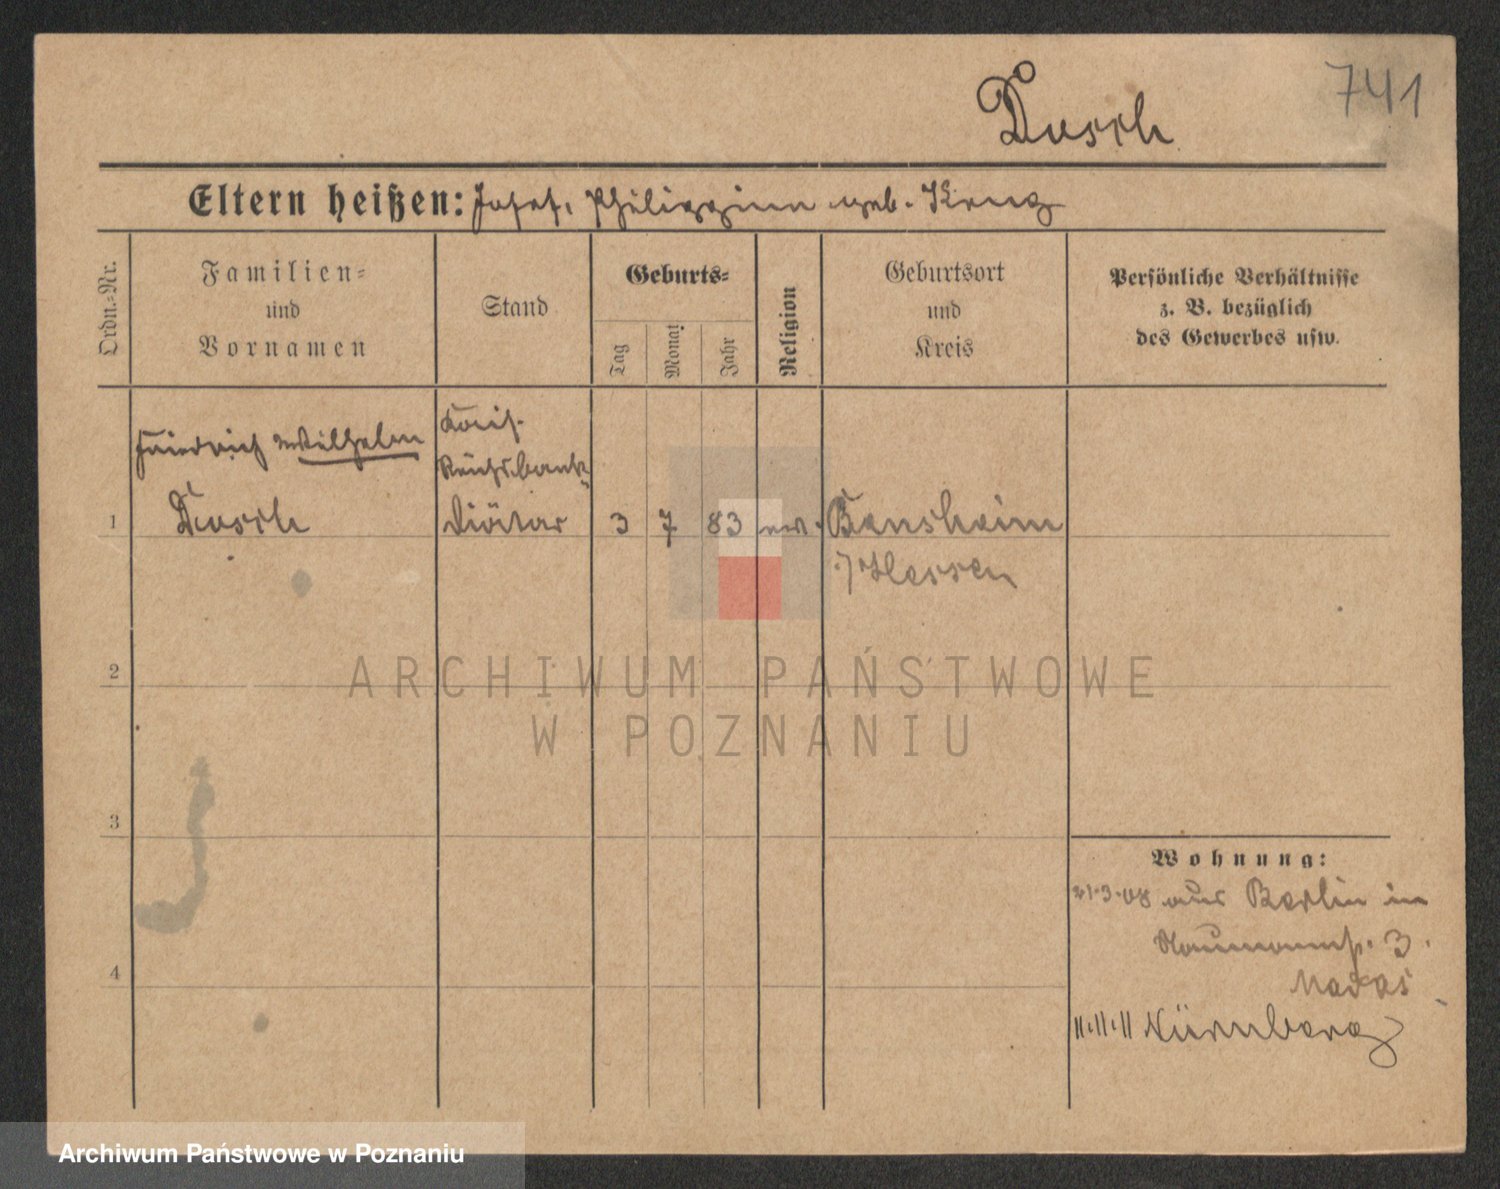 741
Dusch
Eltern heißen: Josef, Philippine geb. Kreuz
Ordn.-Nr.
Familien-
und
Vornamen
Stand
Geburts-
Tag
Monat
Jahr
Religion
Geburtsort
und
Kreis
Persönliche Verhältnisse
z. B. bezüglich
des Gewerbes usw.
Friedrich Wilhelm
Reichsbank-
1 Dusch Diätar 3 7 83 ev. Bensheim
Hessen
2
3
4
Wohnung:
21.3.08 aus Berlin in
Naumannst. 3.
11.11.11 Nürnberg
ARCHIWUM PAŃSTWOWE
W POZNANIU
Archiwum Państwowe w Poznaniu